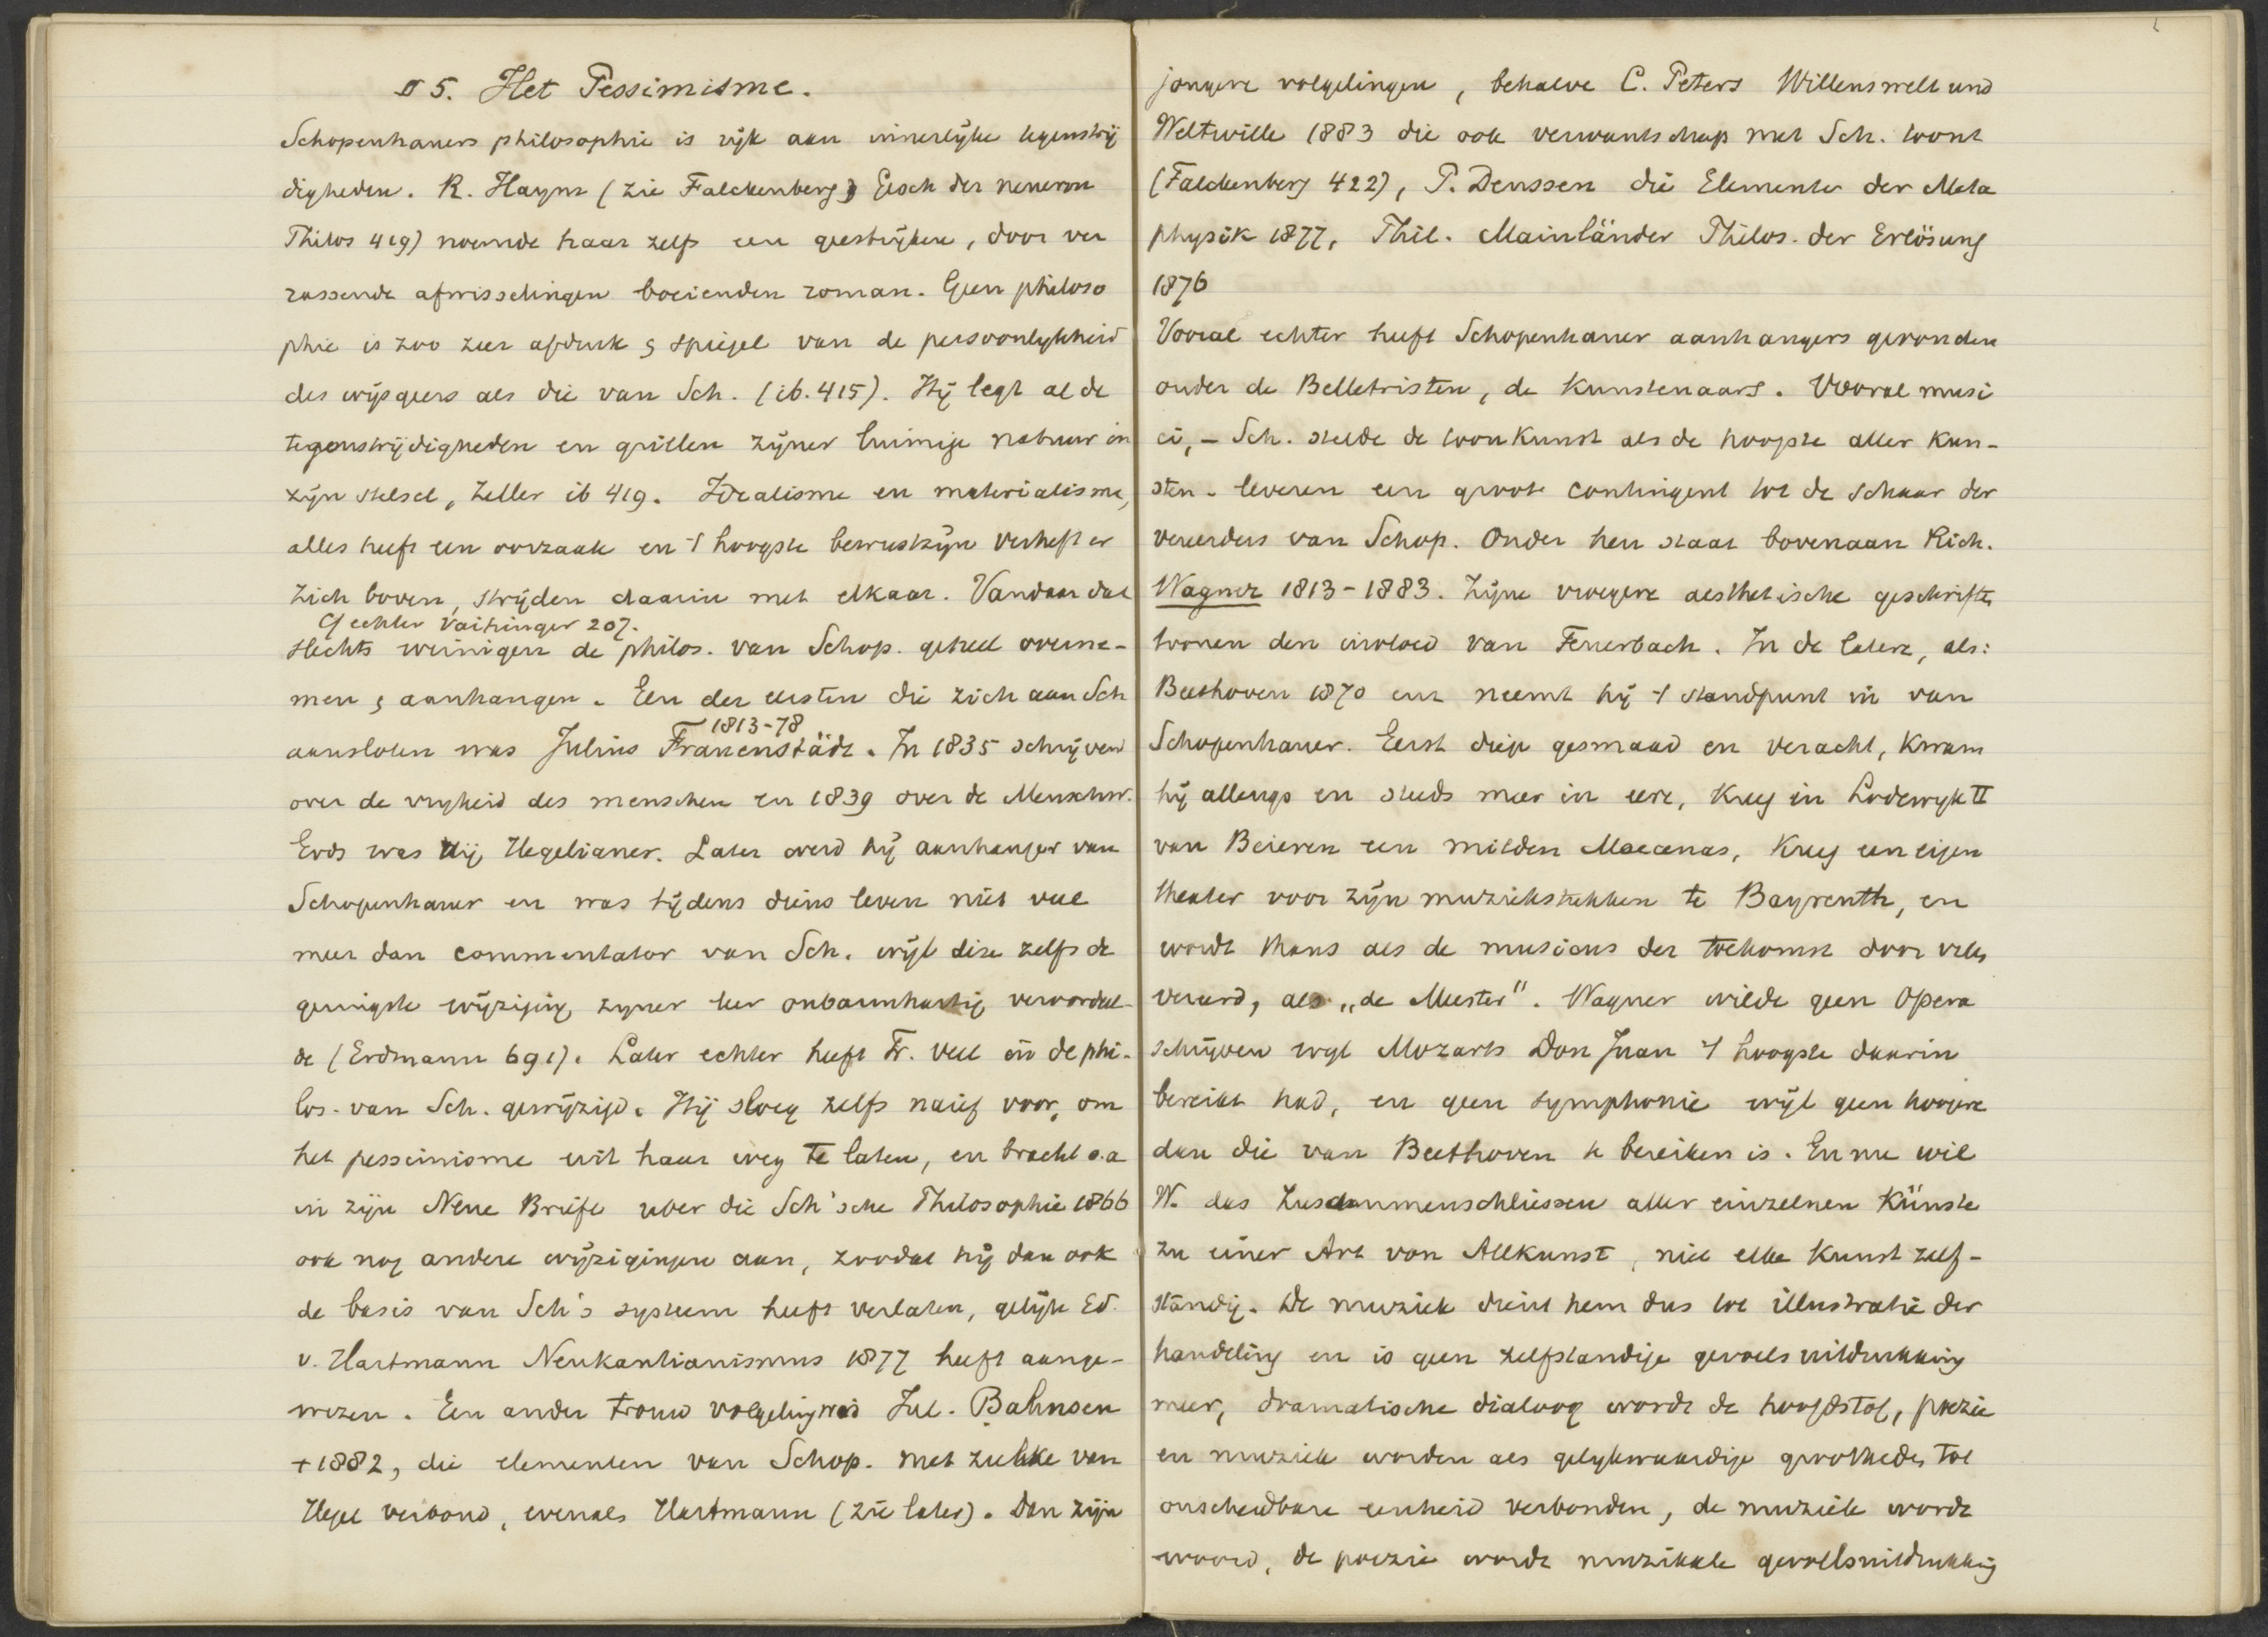 § 5. Het Pessimisme.
Schopenhauers philosophie is rijk aan innerlijke tegenstrij
digheden. R. Haym (zie Falckenberg) Gesch der neueren
Philos 419) noemde haar zelfs een geestrijken, door ver
rassende afwisselingen boeienden roman. Geen philoso
phie is zoo zeer afdruk & spiegel van de persoonlykheid
des wijsgeers als die van Sch. (ib. 415). Hij legt al de
tegenstrijdigheden en grillen zijner luimige natuur in
zijn stelsel, Zeller ib 419. Idealisme en materialisme,
alles heeft een oorzaak en 't hoogste bewustzijn verheft er
zich boven, strijden daarin met elkaar. Vandaar dat
Cf echter Vaihinger 207.
slechts weinigen de philos. van Schop. geheel overna-
men & aanhangen. Een der eersten die zich aan Sch
1813-78
aansloten was Julius Frauenstädt. In 1835 schrijvend
over de vryheid des menschen en 1839 over de Menschw.
Gods was hij Hegelianer. Later werd hij aanhanger van
Schopenhauer en was tijdens diens leven niet veel
meer dan commentator van Sch. wijl deze zelfs de
geringste wijziging zyner leer onbarmhartig veroordeel-
de (Erdmann 691). Later echter heeft Fr. veel in de phi-
los. van Sch. gewijzigd. Hij sloeg zelfs naief voor, om
het pessimisme uit haar weg te laten, en bracht o.a
in zijn Neue Briefe uber die Sch'sche Philosophie 1866
ook nog andere wijzigingen aan, zoodat hij dan ook
de basis van Sch's systeem heeft verlaten, gelijk Ed.
v. Hartmann Neukantianismus 1877 heeft aange-
wezen. Een ander trouw volgeling was Jul. Bahnsen
+ 1882, die elementen van Schop. met zulke van
Hegel verbond, evenals Hartmann (zie later). Dan zijn
jongere volgelingen, behalve C. Peters Willenswelt und
Weltwille 1883 die ook verwantschap met Sch. toont
(Falckenberg 422), P. Deussen die Elemente der Meta
physik 1877, Phil. Mainländer Philos. der Erlösung
1876
Vooral echter heeft Schopenhauer aanhangers gevonden
onder de Belletristen, de Kunstenaars. Vooral musi
ci, - Sch. stelde de toonkunst als de hoogste aller kun-
sten - leveren een groote contingent tot de schaar der
vereerders van Schop. Onder hen staat bovenaan Rich.
Wagner 1813-1883. Zijne vroegere aesthetische geschriften
toonen den invloed van Feuerbach. In de latere, als:
Beethoven 1870 enz neemt hij 't standpunt in van
Schopenhauer. Eerst diep gesmaad en veracht, kwam
hij allengs en steeds meer in eere, kreeg in Lodewyk II
van Beieren een milden Maecenas, kreeg een eigen
theater voor zijn muziekstukken te Bayreuth, en
wordt thans als de musicus der toekomst door velen
vereerd, als „de Meester". Wagner wilde geen Opera
schrijven wyl Mozarts Don Juan 't hoogste daarin
bereikt had, en geen symphonie wijl geen hoogere
dan die van Beethoven te bereiken is. En nu wil
W. das Zusammenschliessen aller einzelnen Künste
zu einer Art von Allkunst, niet elke Kunst zelf-
standig. De muziek dient hem dus tot illustratie der
handeling en is geen zelfstandige gevoelsuitdrukking
meer, dramatische dialoog wordt de hoofdstof, poezie
en muziek worden als gelykwaardige grootheden tot
onscheidbare eenheid verbonden, de muziek wordt
woord, de poezie wordt muzikale gevoelsuitdrukking